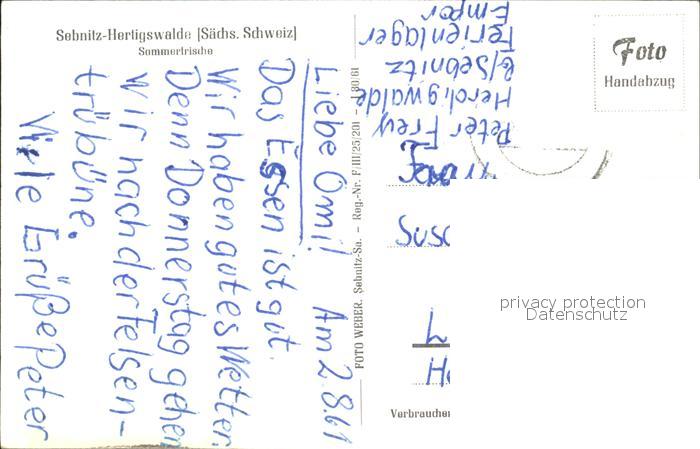 Sebnitz-Hertigswalde [Sächs. Schweiz]
Sommerfrische
Liebe Omi! Am 2.8.61
Das Essen ist gut.
Wir haben gutes Wetter.
Denn Donnerstag gehen
wir nach der Felsen-
trübüne.
Viele Grüße Peter
FOTO WEBER, Sebnitz-Sa. – Reg.-Nr. F/III/25/201 – J 80/61
Peter Frey
Herdigwalde
b/Sebnitz
Ferienlager
Empor
Foto
Handabzug
Susa
H
Verbraucher
privacy protection
Datenschutz